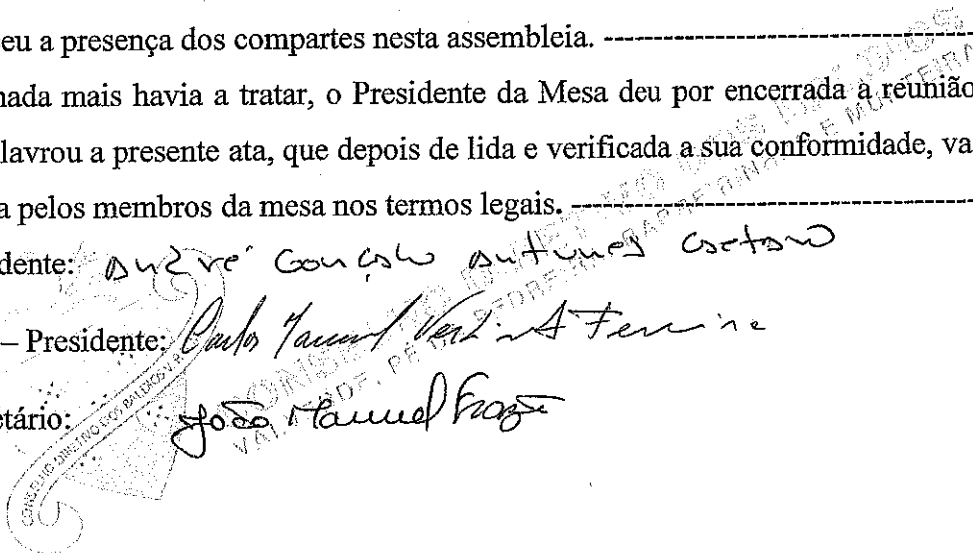 eu a presença dos compartes nesta assembleia. ---
nada mais havia a tratar, o Presidente da Mesa deu por encerrada a reunião
lavrou a presente ata, que depois de lida e verificada a sua conformidade, va
a pelos membros da mesa nos termos legais. ---
dente: André Gonçalo Antunes Caetano
– Presidente: Carlos Manuel Ferreira
etário: João Manuel Frazão
CONSELHO DIRETIVO DOS BALDIOS V.